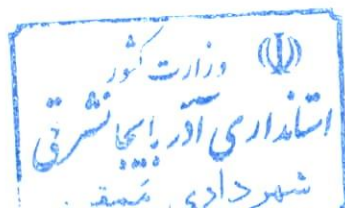 وزارت کشور
استانداری آذربایجانشرقی
شهرداری